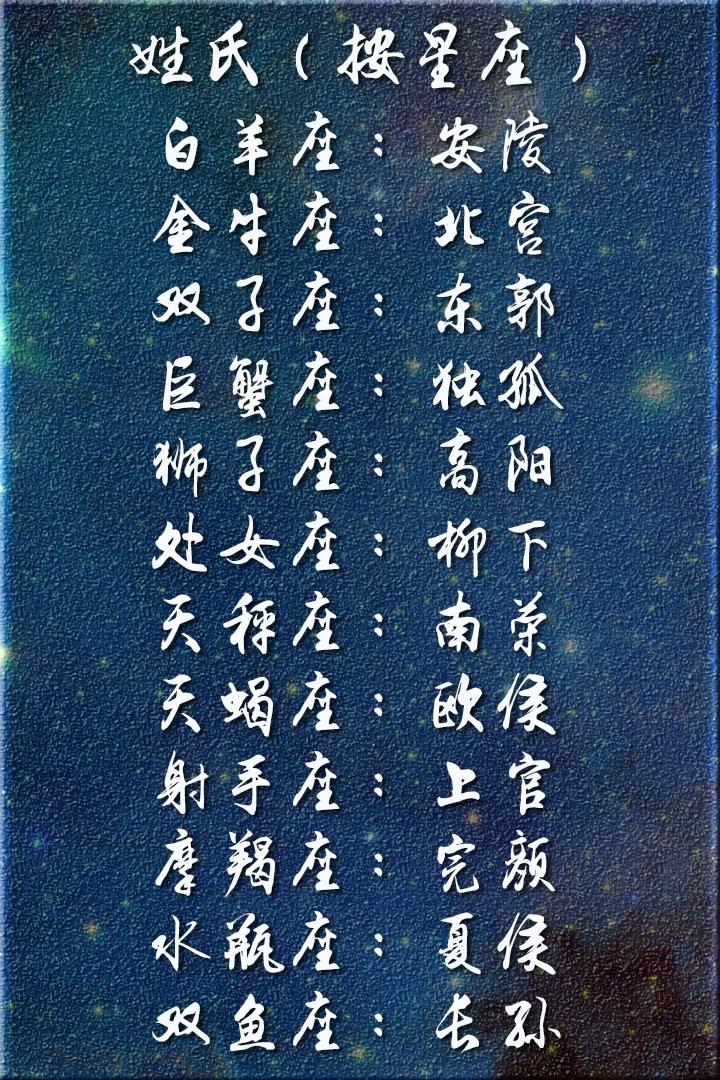 姓氏（按星座）
白羊座：安陵
金牛座：北宫
双子座：东郭
巨蟹座：独孤
狮子座：高阳
处女座：柳下
天秤座：南荣
天蝎座：欧侯
射手座：上官
摩羯座：完颜
水瓶座：夏侯
双鱼座：长孙